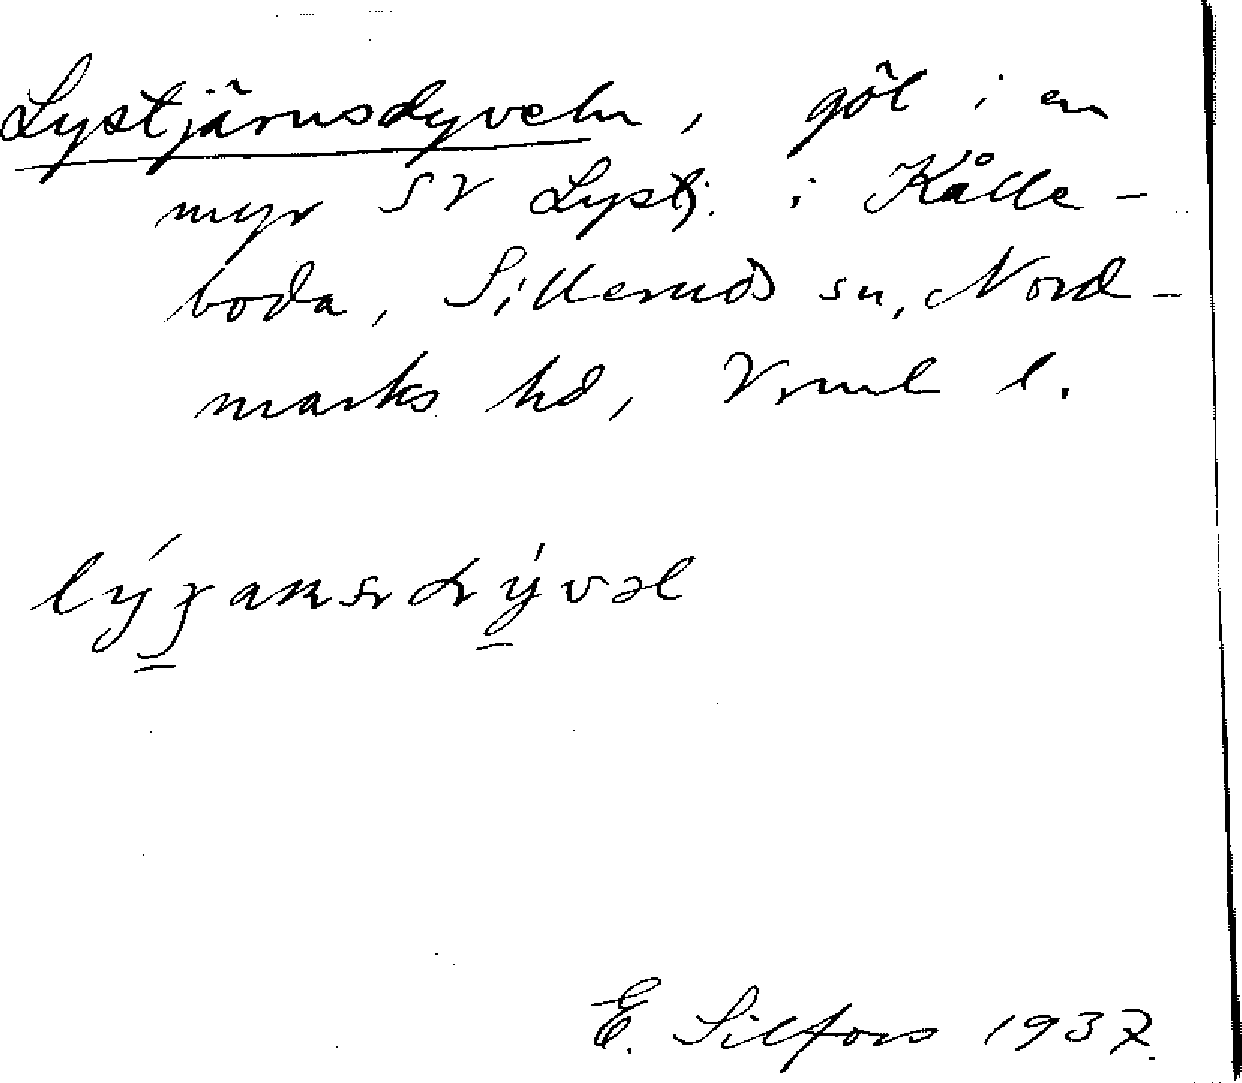 Lystjärnsdyveln, göl i en
myr SV Lystj. i Kålle-
boda, Sillerud sn, Nord-
marks hd, Vrml l.
E. Silfors 1937.